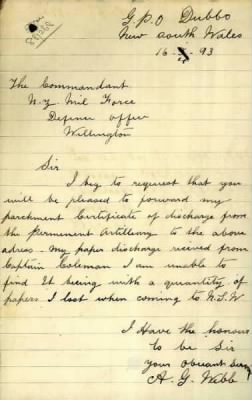 G.P.O Dubbo
New South Wales
93
The Commandant
N.Z Mil Force
Defence Office
Wellington
Sir
I beg to request that you
will be pleased to forward my
parchment Certificate of discharge from
the Permenent Artillemy to the above
adress - My paper discharge recived from
Captain Coleman I am unable to
find It being with a quantity of
papers I lost when coming to N.S.W.
I Have the honour
to be Sir
your Obediant Servt
A. G. Webb